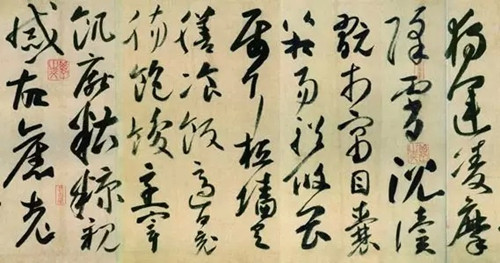 獨運凌摩
絳霄耽讀
翫市寓目囊
箱易輶攸畏
屬耳垣墻具
膳飡飯適口充
腸飽飫烹宰
飢厭糟糠親
慼故舊老